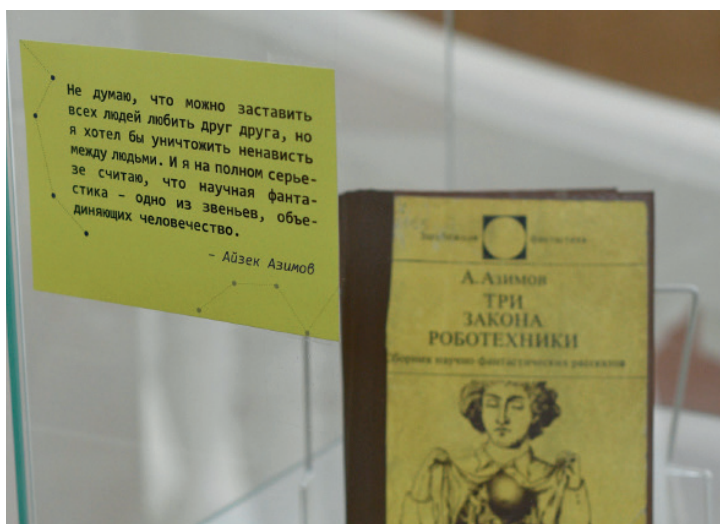 Не думаю, что можно заставить
всех людей любить друг друга, но
я хотел бы уничтожить ненависть
между людьми. И я на полном серье-
зе считаю, что научная фанта-
стика – одно из звеньев, объе-
диняющих человечество.
– Айзек Азимов
Зарубежная фантастика
А. Азимов
ТРИ
ЗАКОНА
РОБОТЕХНИКИ
Сборник научно-фантастических рассказов